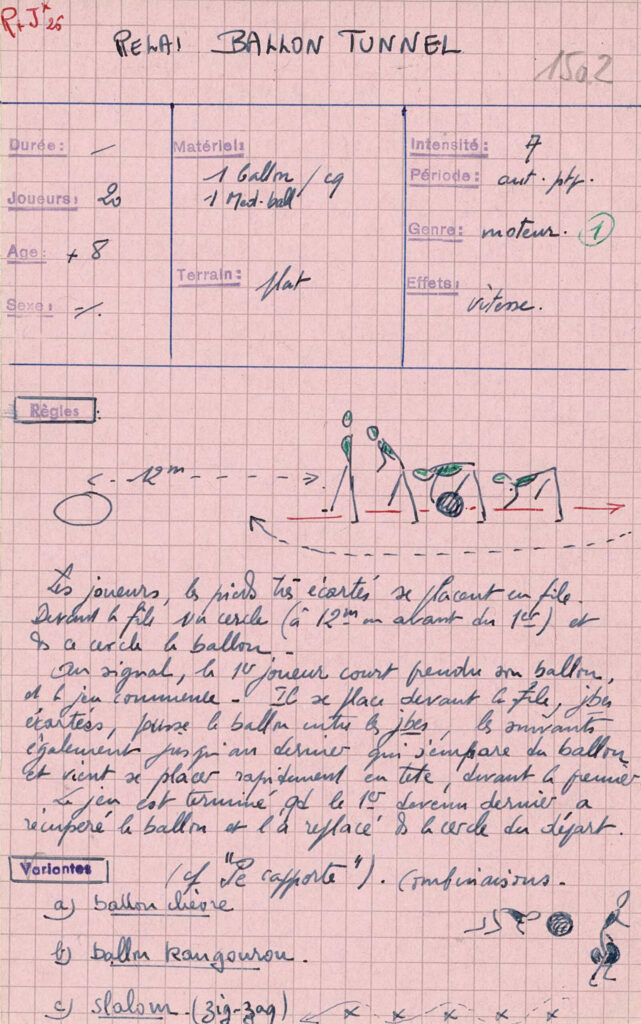 P+J* 26
RELAI BALLON TUNNEL
15a2
Durée: —
Joueurs: 20
Age: + 8
Sexe: -/.
Matériel:
1 ballon / eq
1 Med-ball
Terrain: plat
Intensité: 7
Période:
Genre: moteur. 1
Effets: vitesse.
Règles:
12m
Les joueurs, les pieds très écartés se placent en file.
Devant la file un cercle (à 12m en avant du 1er) et
ds ce cercle le ballon -
Au signal, le 1er joueur court prendre son ballon,
et le jeu commence - Il se place devant la file, jbes
écartées, pousse le ballon entre les jbes, les suivants
également jusqu'au dernier qui s'empare du ballon
et vient se placer rapidement en tête, devant le premier
Le jeu est terminé qd le 1er devenu dernier a
récupéré le ballon et l'a replacé ds le cercle du départ.
Variantes
(cf "Se rapporte"). Combinaisons.
a) ballon chèvre
b) ballon kangourou.
c) slalom. (zig-zag)